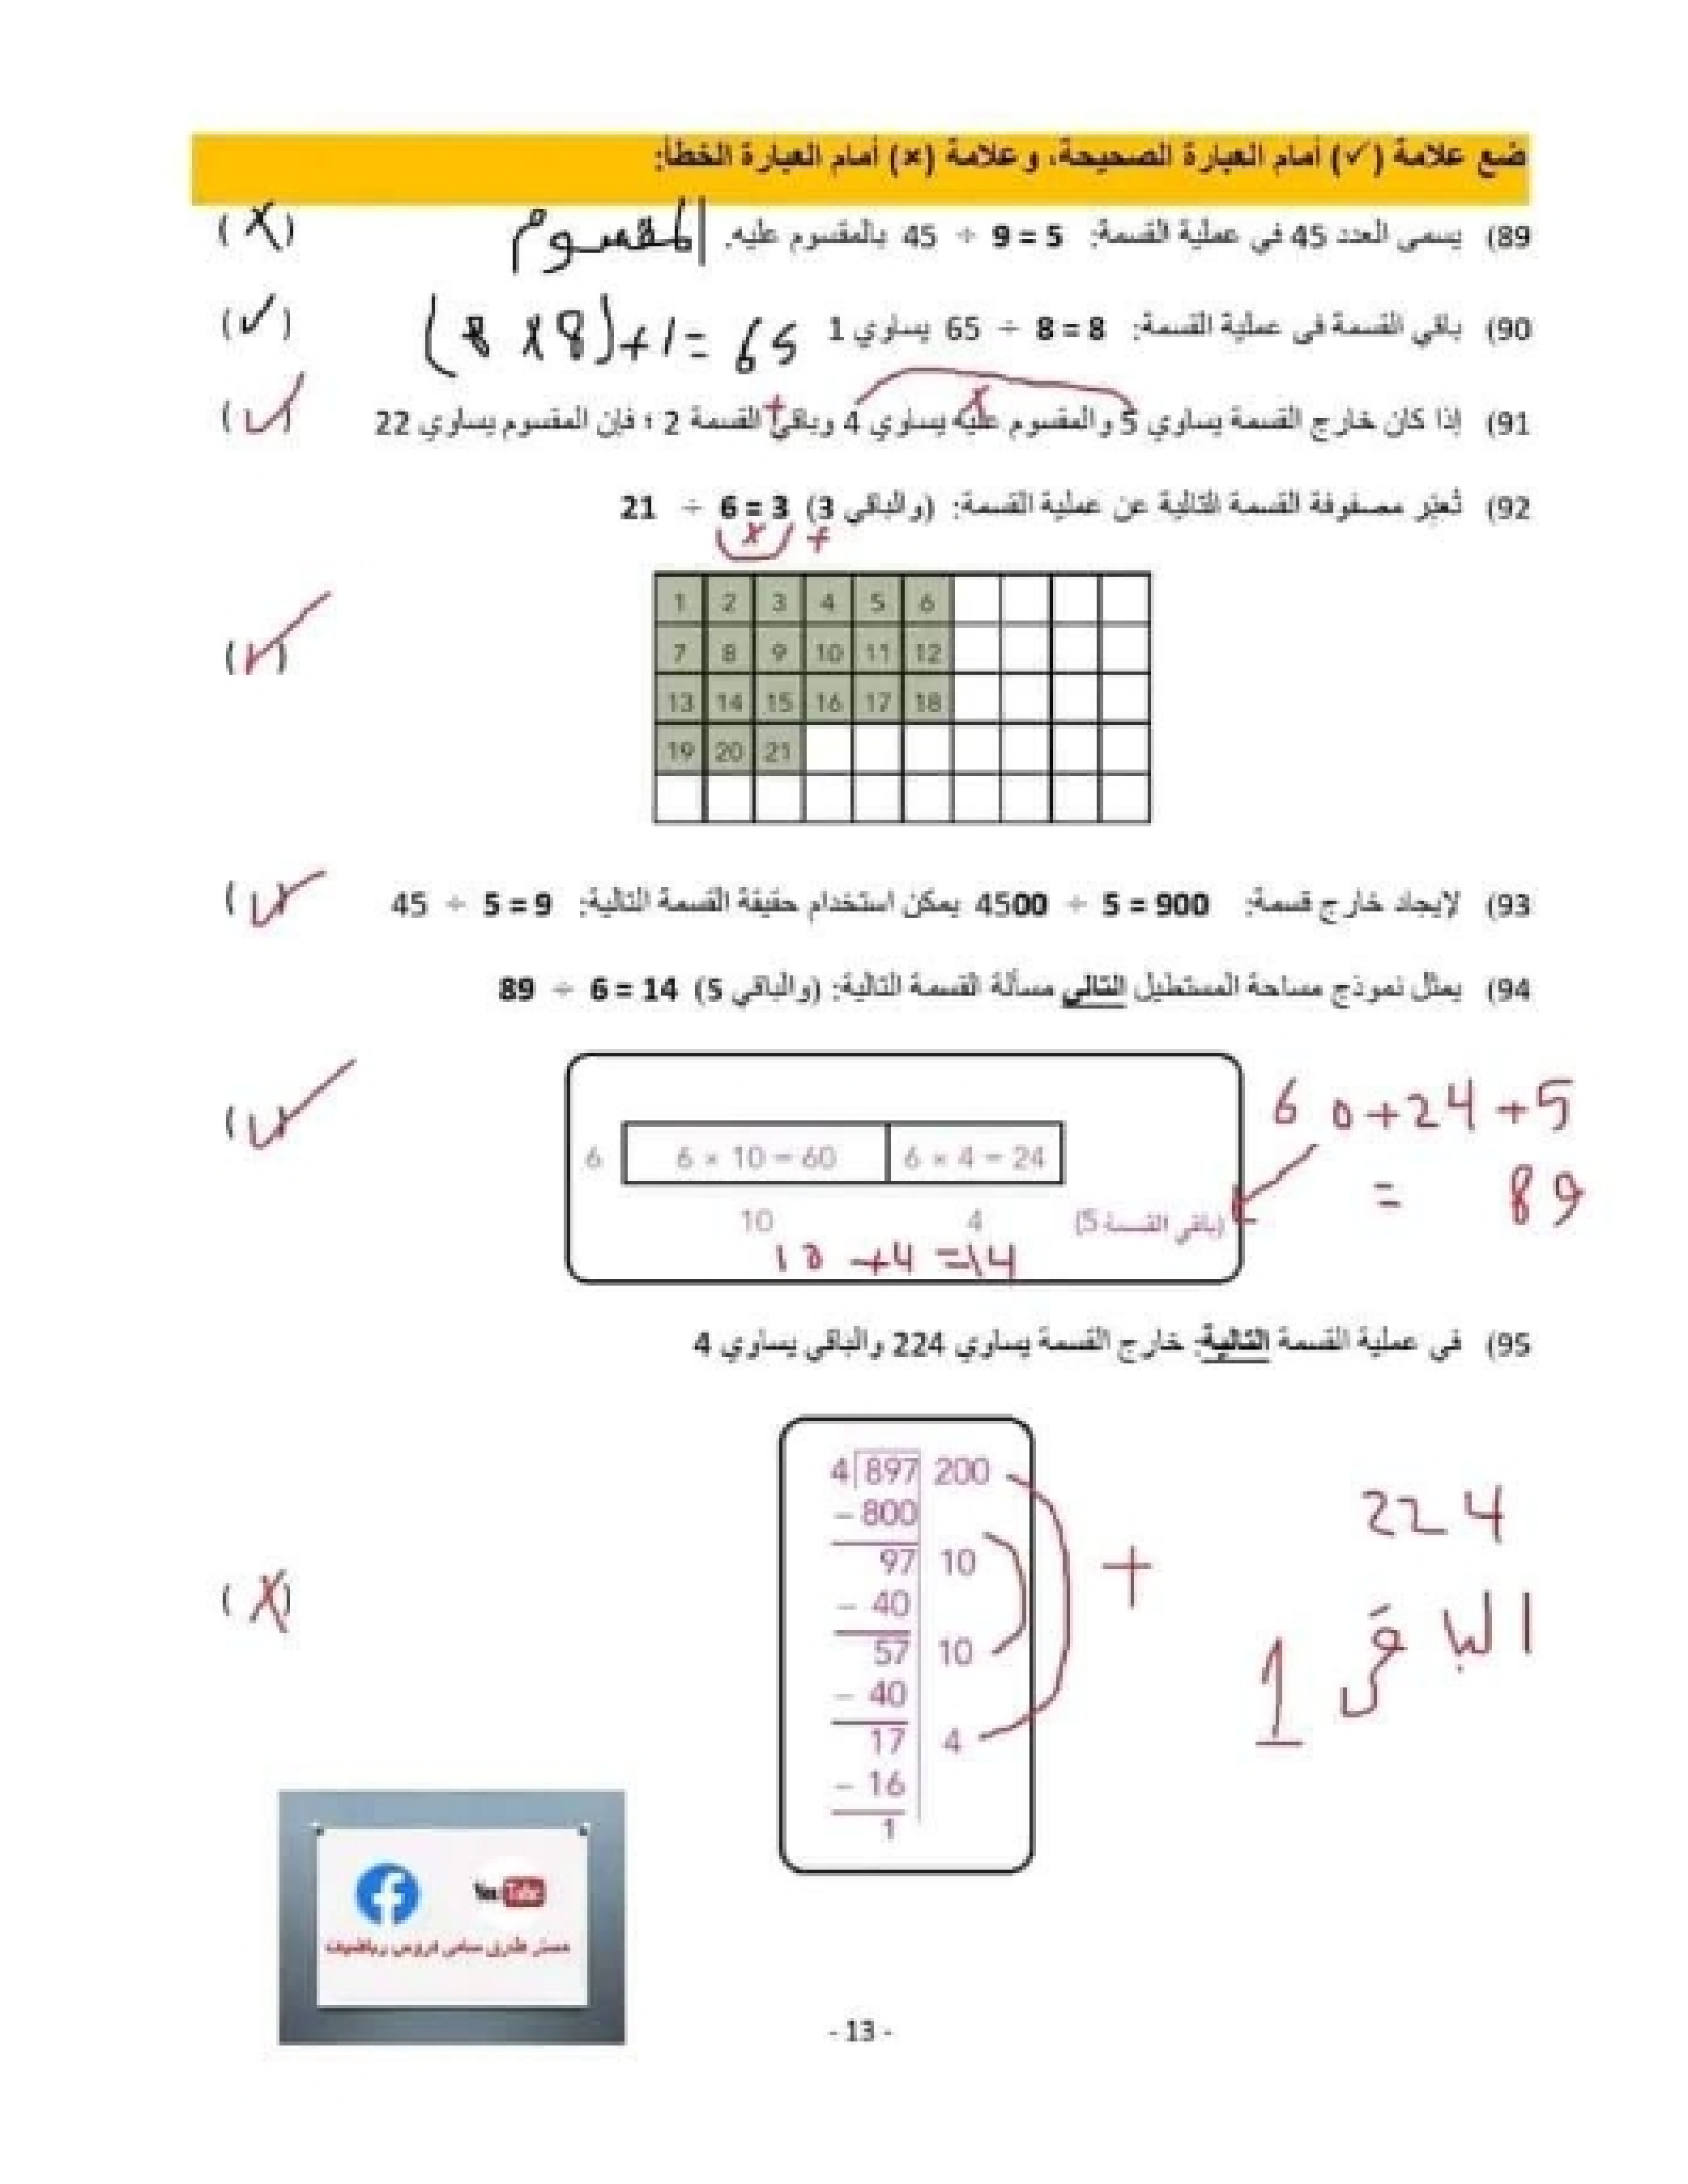 ضع علامة (✓) أمام العبارة الصحيحة، وعلامة (×) أمام العبارة الخطأ:
89) يسمى العدد 45 في عملية القسمة: 45 ÷ 9 = 5 بالمقسوم عليه. المقسوم (X)
90) باقي القسمة في عملية القسمة: 65 ÷ 8 = 8 يساوي 1 (8 X 8) + 1 = 65 (✓)
91) إذا كان خارج القسمة يساوي 5 والمقسوم عليه يساوي 4 وباقي القسمة 2 ؛ فإن المقسوم يساوي 22 (✓)
x +
92) تُعبّر مصفوفة القسمة التالية عن عملية القسمة: 21 ÷ 6 = 3 (والباقي 3)
x +
1 2 3 4 5 6
7 8 9 10 11 12
(✓)
13 14 15 16 17 18
19 20 21
93) لإيجاد خارج قسمة: 4500 ÷ 5 = 900 يمكن استخدام حقيقة القسمة التالية: 45 ÷ 5 = 9 (✓)
94) يمثل نموذج مساحة المستطيل التالي مسألة القسمة التالية: 89 ÷ 6 = 14 (والباقي 5)
60 + 24 + 5
(✓)
6 6 × 10 = 60 6 × 4 = 24
= 89
10 4 (باقي القسمة 5)
10 + 4 = 14
95) في عملية القسمة التالية: خارج القسمة يساوي 224 والباقي يساوي 4
4 897 200
224
- 800
97 10
+
- 40
(X)
57 10
الباقى 1
- 40
17 4
- 16
1
You Tube
مستر طارق سامى دروس رياضيات
- 13 -